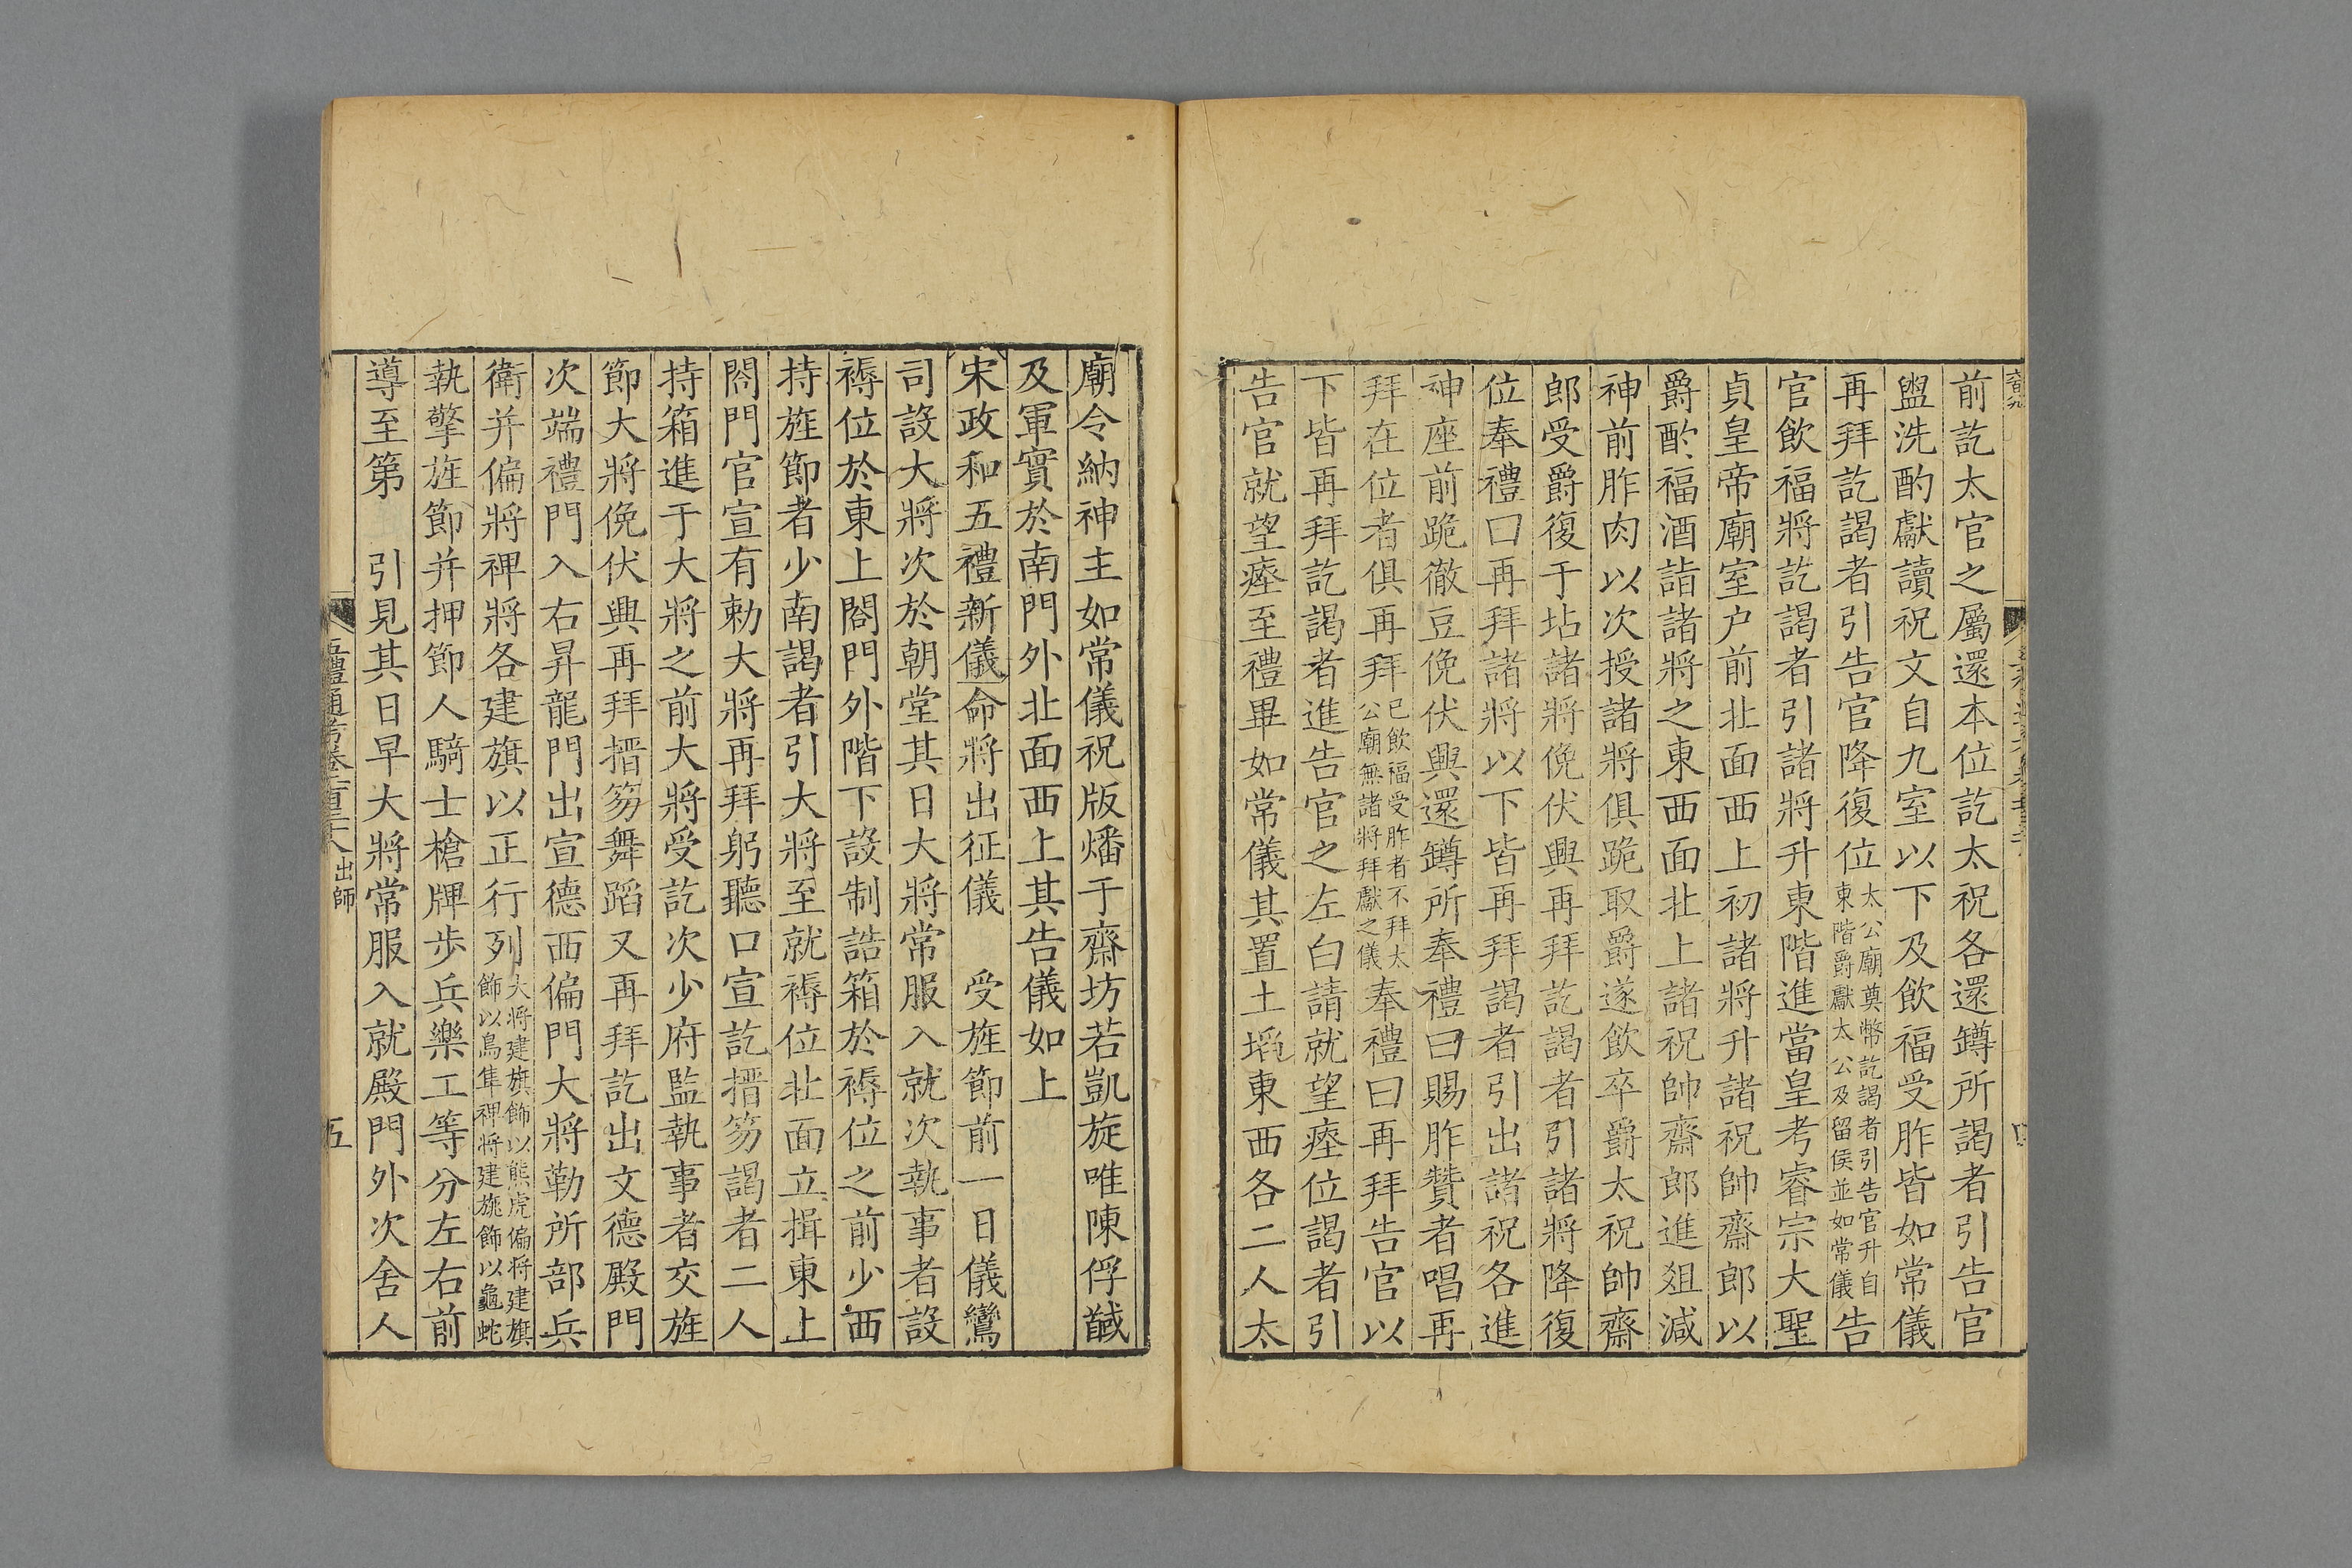 前訖太官之屬還本位訖太祝各還罇所謁者引告官
盥洗酌獻讀祝文自九室以下及飲福受胙皆如常儀
再拜訖謁者引告官降復位太公廟奠幣訖謁者引告官升自東階爵獻太公及留侯並如常儀告
官飲福將訖謁者引諸將升東階進當皇考睿宗大聖
貞皇帝廟室户前北面西上初諸將升諸祝帥齋郎以
爵酌福酒詣諸將之東西面北上諸祝帥齋郎進爼減
神前胙肉以次授諸將俱跪取爵遂飲卒爵太祝帥齋
郎受爵復于坫諸將俛伏興再拜訖謁者引諸將降復
位奉禮曰再拜諸將以下皆再拜謁者引出諸祝各進
神座前跪徹豆俛伏興還罇所奉禮曰賜胙贊者唱再
拜在位者俱再拜已飲福受胙者不拜太公廟無諸將拜獻之儀奉禮曰再拜告官以
下皆再拜訖謁者進告官之左白請就望瘞位謁者引
告官就望瘞至禮畢如常儀其置土㘰東西各二人太
廟令納神主如常儀祝版燔于齋坊若凱旋唯陳俘馘
及軍實於南門外北面西上其告儀如上
宋政和五禮新儀命將出征儀　受旌節前一日儀鸞
司設大將次於朝堂其日大將常服入就次執事者設
褥位於東上閤門外階下設制誥箱於褥位之前少西
持旌節者少南謁者引大將至就褥位北面立揖東上
閤門官宣有勅大將再拜躬聽口宣訖搢笏謁者二人
持箱進于大將之前大將受訖次少府監執事者交旌
節大將俛伏興再拜搢笏舞蹈又再拜訖出文德殿門
次端禮門入右昇龍門出宣德西偏門大將勒所部兵
衛并偏將裨將各建旗以正行列大將建旗飾以熊虎偏將建旗飾以鳥隼裨將建旐飾以龜蛇
執擎旌節并押節人騎士槍牌步兵樂工等分左右前
導至第　引見其日早大將常服入就殿門外次舍人
五禮通考卷　出師　五